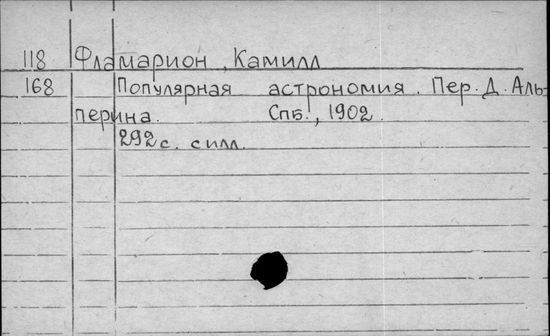 118 Фламарион, Камилл
168 Популярная астрономия. Пер. Д. Аль-
перина. Спб., 1902.
292 с. силл.